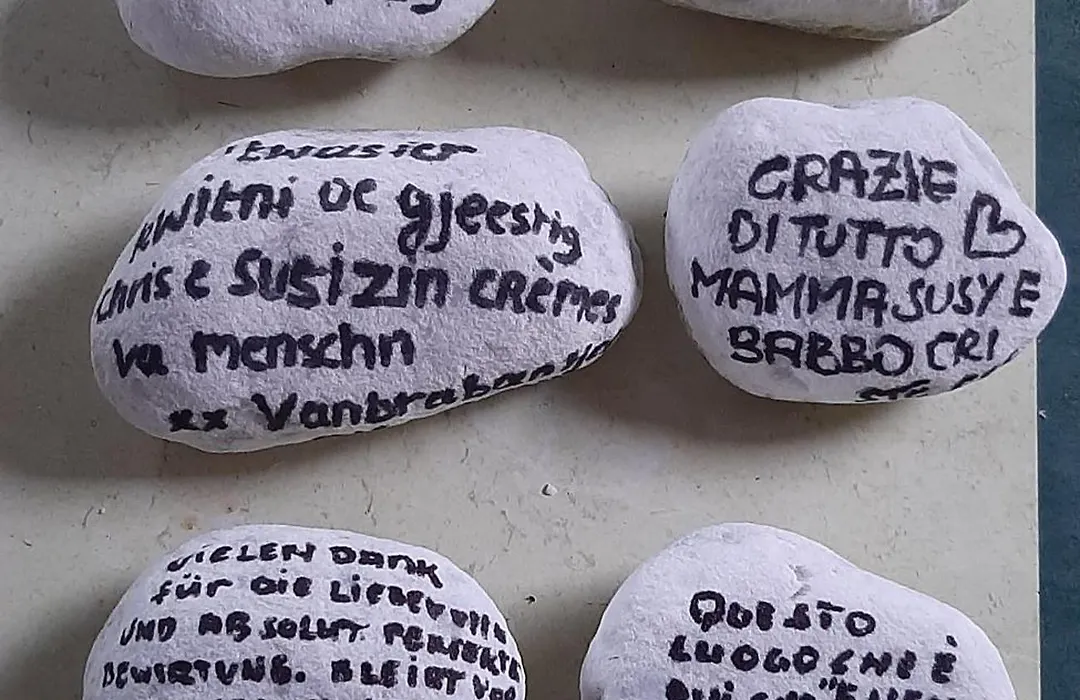 Kwitni oe gjeestig
Chris e Susi zin crèmes
va menschn
xx Vanbrabant
GRAZIE
DI TUTTO
MAMMA SUSY E
BABBO CRI
VIELEN DANK
für die Liebevolle
UND ABSOLUT PERFEKTE
BEWIRTUNG. BLEIBT
QUESTO
LUOGO CHE È